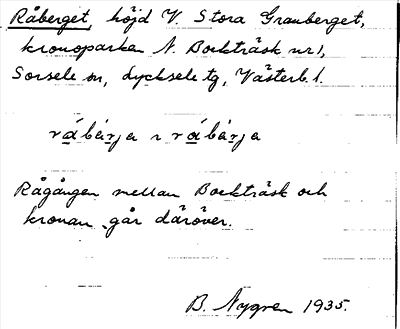 Råberget, höjd V. Stora Granberget,
kronoparken N. Bockträsk nr 1,
Sorsele sn, Lycksele tg, Västerb. l.
råbärja ɿ råbärja
Rågången mellan Bockträsk och
kronan går däröver.
B. Nygren 1935.